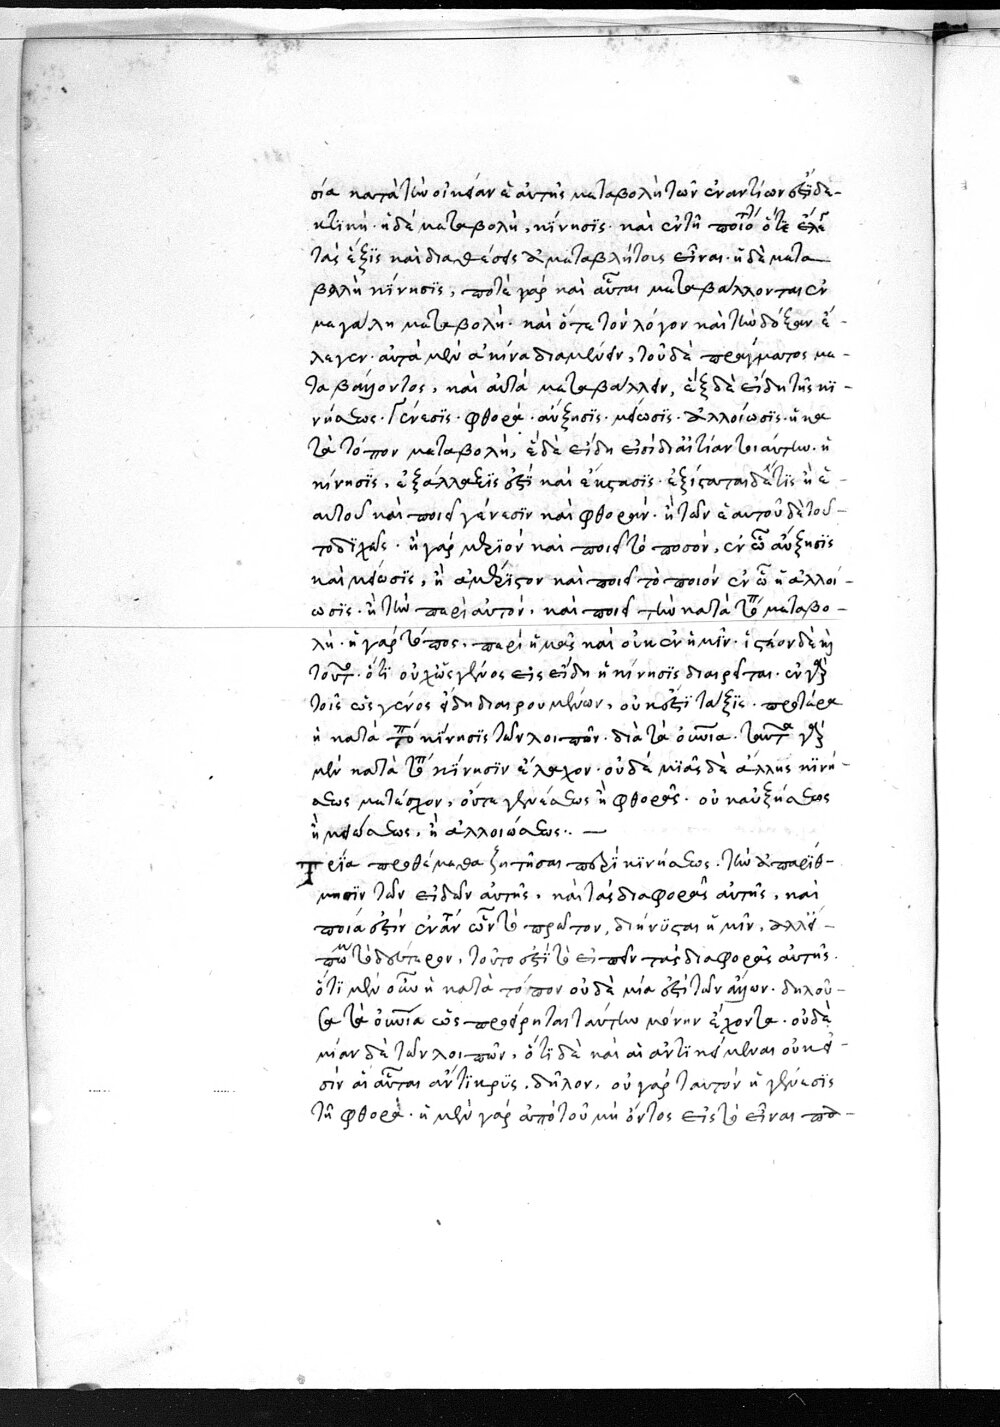 σία κατὰ τὴν οἰκείαν ἑαυτῆς μεταβολὴ τῶν ἐναντίων ἐστὶ δε-
κτικὴ· ἡ δὲ μεταβολὴ, κίνησις· καὶ ἐν τῇ ποιότητι ὅτε ἔλεγε
τὰς ἕξις καὶ διαθέσεις ἀμεταβλήτοις εἶναι· ἡ δὲ μετα
βολὴ κίνησις, ποτὲ γὰρ καὶ αὗται μεταβάλλονται ἐν
μεγάλη μεταβολῆ· καὶ ὅτε τὸν λόγον καὶ τὴν δόξαν ἔ-
λεγεν· αὐτὰ μὲν ἀκίνα διαμένειν, τοῦ δὲ πράγματος με-
ταβάλλοντος, καὶ αὐτὰ μεταβάλλειν, ἓξ δὲ εἴδη τῆς κι-
νήσεως· Γένεσις· φθορά· αὔξησις· μείωσις· ἀλλοίωσις· ἡ κα
τὰ τόπον μεταβολὴ, εἴδη εἰσὶ δι' αἰτίαν τοιαύτην· ἡ
κίνησις, ἐξάλλαξις ἐστὶ καὶ ἔκστασις· ἐξίσταται δέ τις ἢ ἑ-
αυτοῦ καὶ ποιεῖ γένεσιν καὶ φθοράν· ἢ τῶν ἑαυτοῦ δὲ τοῦ-
το διχῶς· ἢ γὰρ μετρίον καὶ ποιεῖ τὸ ποσόν, ἐν ᾧ αὔξησις
καὶ μείωσις, ἢ ἀμέριστον καὶ ποιεῖ τὸ ποιόν ἐν ᾧ ἡ ἀλλοί-
ωσις· ἢ τῶν περὶ αὐτόν, καὶ ποιεῖ τὴν κατὰ τόπον μεταβο-
λὴ· ἢ γὰρ τόπος, περὶ ἡμᾶς καὶ οὐκ ἐν ἡμῖν· ἰστέον δὲ καὶ
τοῦτο· ὅτι οὐχ ὡς γένος εἰς εἴδη ἡ κίνησις διαιρεῖται· ἐν γὰρ
τοῖς ὡς γένος εἴδη διαιρουμένων, οὐκ ἔστι τάξις· προτέρα
ἡ κατὰ τόπον κίνησις τῶν λοιπῶν· διὰ τὰ οὐράνια· ταῦτα γὰρ
μὲν κατὰ τόπον κίνησιν ἔλαχον· οὐδὲ μιᾶς δὲ ἄλλης κινή-
σεως μετέσχον, οὔτε γενέσεως ἢ φθορᾶς· οὐκ αὐξήσεως
ἢ μειώσεως, ἢ ἀλλοιώσεως.
Τρία προθέμενα ζητῆσαι περὶ κινήσεως· τὴν ἀπαρίθ-
μησιν τῶν εἰδῶν αὐτῆς, καὶ τὰς διαφορὰς αὐτῆς, καὶ
ποιά ἐστιν ἐναντίον τὸ πρῶτον, διήνυσται ἡμῖν, ἀλλ' εἴ-
πω τὸ δεύτερον, τοῦτο ἐστὶ τὸ εἰπεῖν τὰς διαφορὰς αὐτῆς.
ὅτι μὲν οὖν ἡ κατὰ τόπον οὐδὲ μία ἐστὶ τῶν ἄλλων· δηλοῦ-
σι τὰ οὐράνια ὡς προείρηται ταύτην μόνην ἔχοντα· οὐδὲ
μίαν δὲ τῶν λοιπῶν, ὅτι δὲ καὶ αἱ ἀντικείμεναι οὐκ εἰ-
σὶν αἱ αὗται ἄντικρυς, δῆλον, οὐ γὰρ ταυτόν ἡ γένεσις
τῇ φθορᾷ· ἡ μὲν γὰρ ἀπὸ τοῦ μὴ ὄντος εἰς τὸ εἶναι πο-